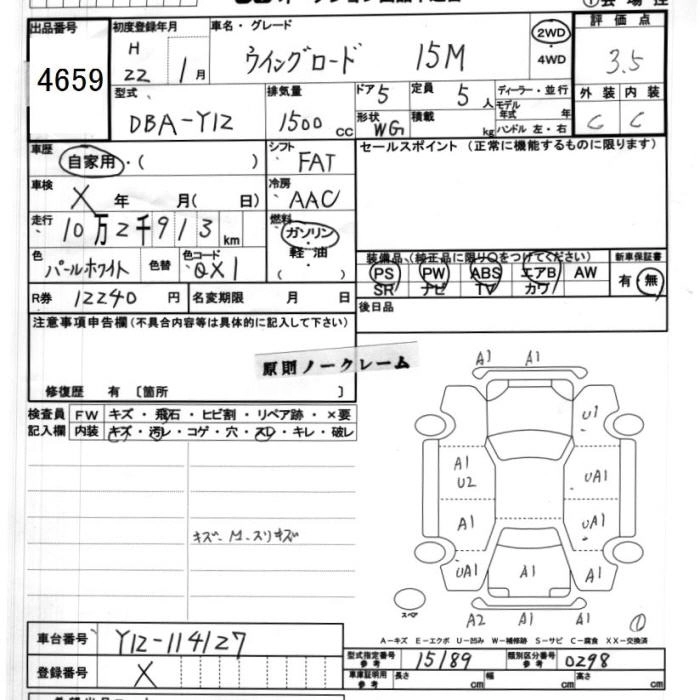 出品番号
4659
初度登録年月
H 22 1月
車名・グレード
ウイングロード 15M
2WD
・
4WD
評価点
3.5
外装 内装
C C
型式
DBA-Y12
排気量
1500 CC
ドア 5
定員 5 人
形状 WG
積載 kg
ディーラー・並行
モデル年式 年
ハンドル 左・右
車歴
自家用・( )
シフト
FAT
セールスポイント (正常に機能するものに限ります)
車検
X 年 月( 日)
冷房
AAC
走行
10万2千913km
燃料
ガソリン
軽油
( )
色
パールホワイト
色替
色コード
QX1
装備品 (純正品に限り○をつけてください)
PS PW ABS エアB AW
SR ナビ TV カワ
新車保証書
有・無
R券 12240 円
名変期限 月 日
後日品
注意事項申告欄(不具合内容等は具体的に記入して下さい)
原則ノークレーム
修復歴 有 〔箇所 〕
検査員
記入欄
FW キズ・飛石・ヒビ割・リペア跡・×要
内装 キズ・汚レ・コゲ・穴・スレ・キレ・破レ
キズ・M.スリキズ
A1 A1
U1
A1
U2
UA1
A1
UA1
UA1 A1 A1
スペア
A2 A1
①
A-キズ E-エクボ U-凹み W-補修跡 S-サビ C-腐食 XX-交換済
車台番号 Y12-114127
登録番号 X
型式指定番号
参考
15189
類別区分番号
参考
0298
車庫証明用
参考
長さ cm 幅 cm 高さ cm